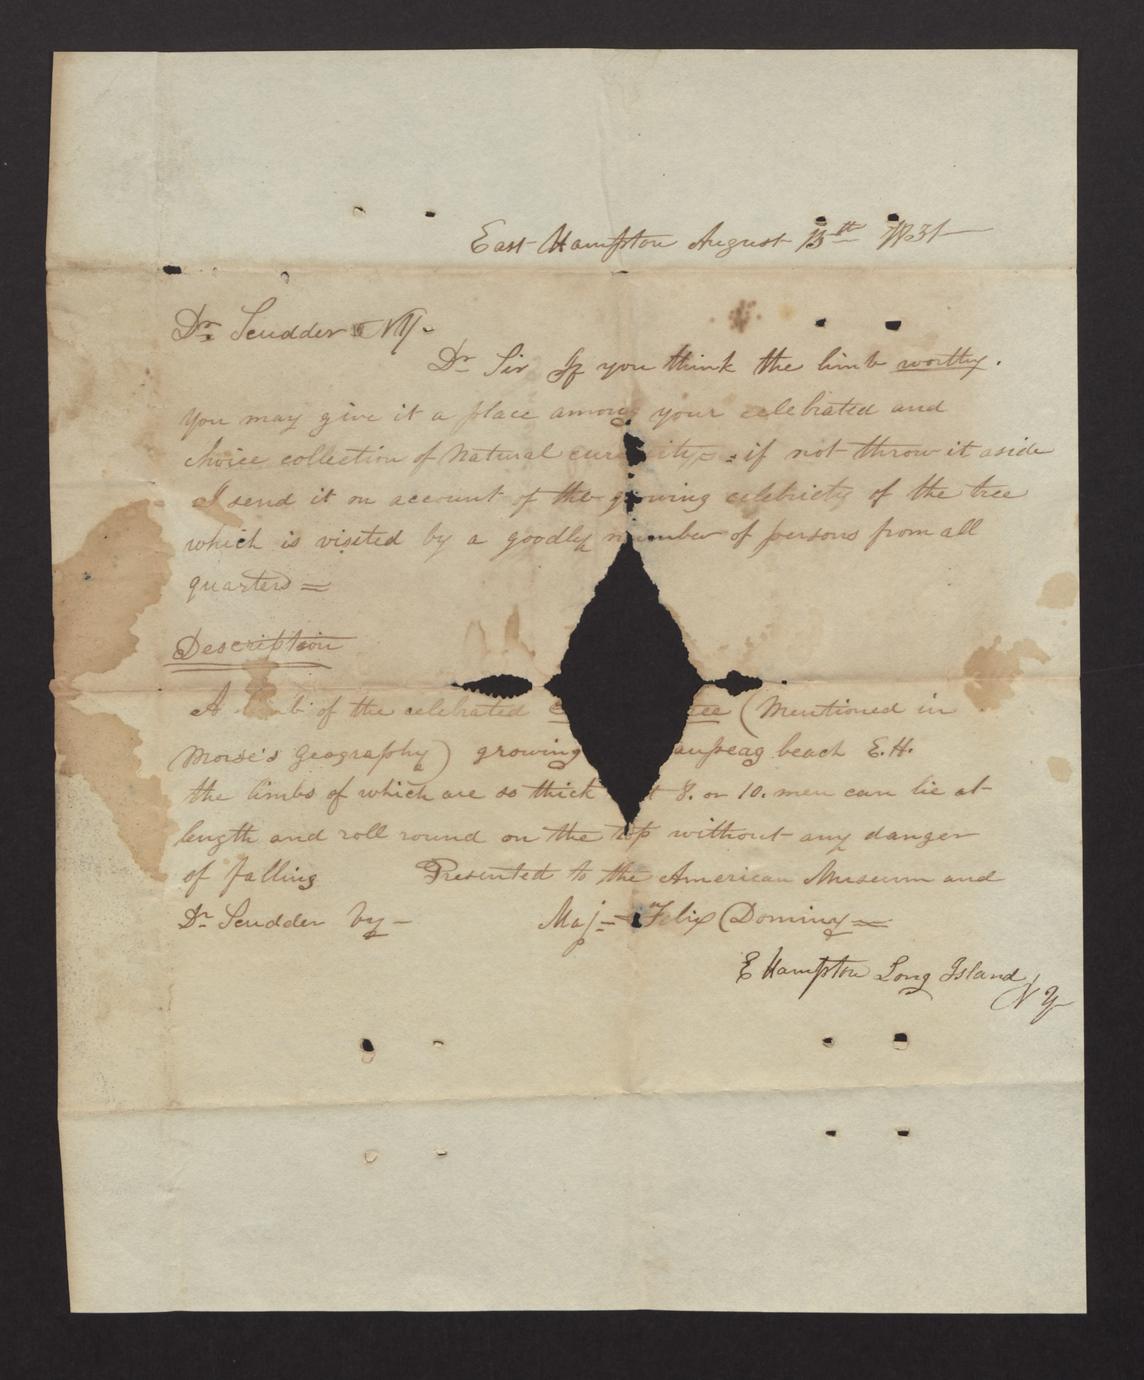 East Hampton August 13th 1831
Dr Scudder NY.
Dr Sir If you think the limb worthy.
you may give it a place among your celebrated and
choice collection of Natural cur ity = if not throw it aside
I send it on account of the growing celebricty of the tree
which is visited by a goodly number of persons from all
quarters =
Description
A limb of the celebrated ee (Mentioned in
Morse's Geography) growing aupeag beach E.H.
the limbs of which are so thick t 8. or 10. men can lie at
length and roll round on the top without any danger
of falling Presented to the American Museum and
Dr Scudder by – Maj = Felix Dominy =
E Hampton Long Island
N Y